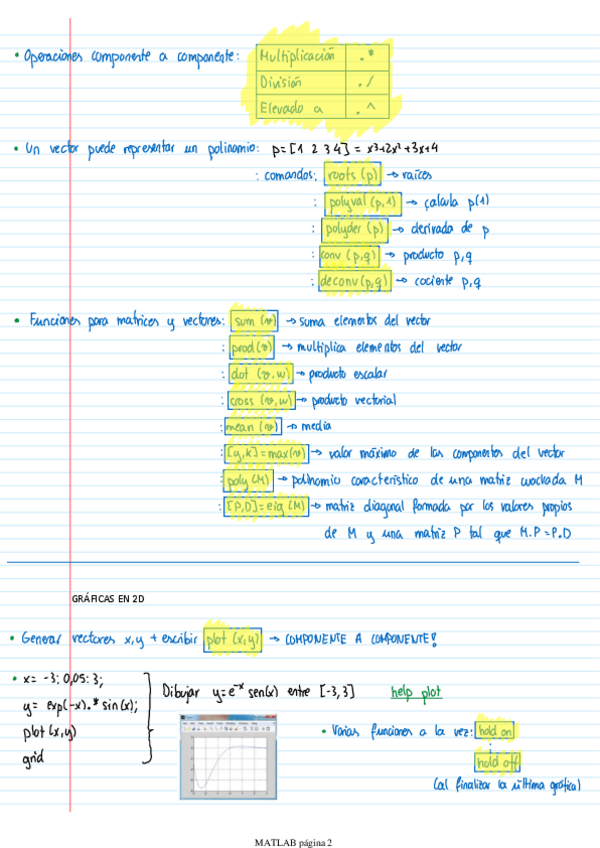 • Operaciones componente a componente: Multiplicación .*
División ./
Elevado a .^
• Un vector puede representar un polinomio: p=[1 2 3 4] = x³+2x²+3x+4
: comandos: roots (p) → raíces
: polyval (p,1) → calcula p(1)
: polyder (p) → derivada de p
: conv (p,q) → producto p,q
: deconv(p,q) → cociente p,q
• Funciones para matrices y vectores: sum (v) → suma elementos del vector
: prod(v) → multiplica elementos del vector
: dot (v,w) → producto escalar
: cross (v,w) → producto vectorial
: mean (v) → media
: [y,k]=max(v) → valor máximo de las componentes del vector
: poly (M) → polinomio característico de una matriz cuadrada M
: [P,D]=eig(M) → matriz diagonal formada por los valores propios
de M y una matriz P tal que M.P=P.D
GRÁFICAS EN 2D
• Generar vectores x,y + escribir plot (x,y) → COMPONENTE A COMPONENTE!
• x= -3:0,05:3;
y= exp(-x).* sin(x);
plot (x,y)
grid
Dibujar y=e⁻ˣ sen(x) entre [-3,3] help plot
• Varias funciones a la vez: hold on
:
hold off
(al finalizar la última gráfica)
MATLAB página 2